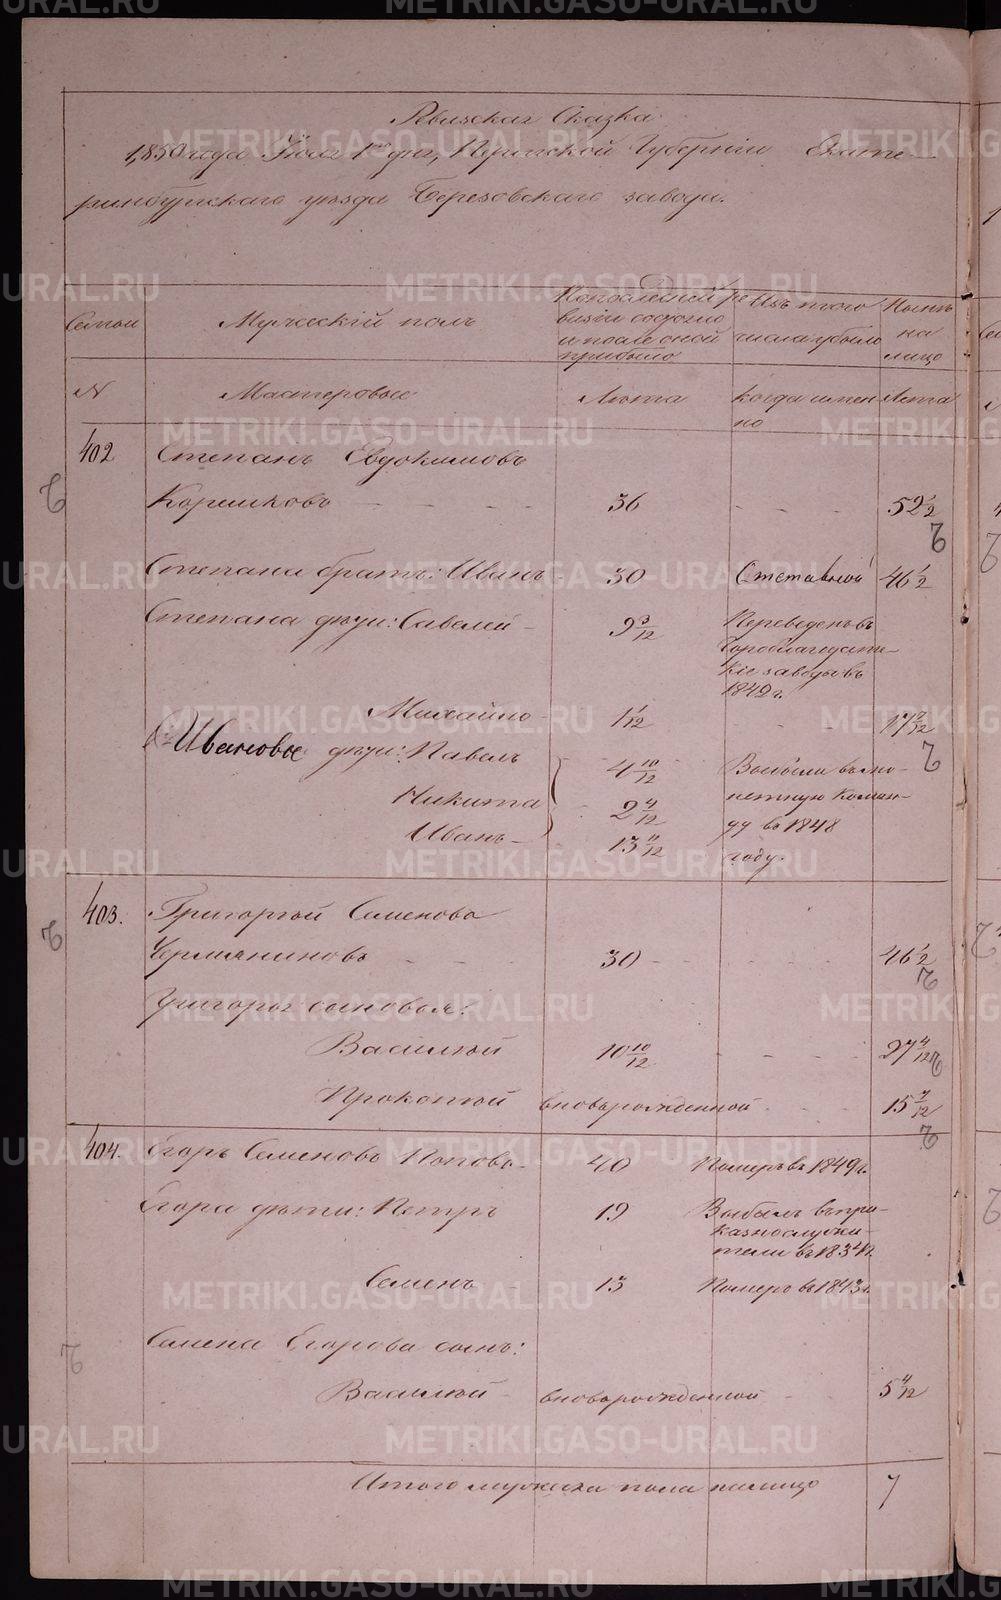 Ревизская Сказка
1850 года Июля 1го дня, Пермской Губернии Екате-
ринбургскаго уезда Березовскаго завода.
Семьи
Мужеский полъ
По последней ре
визии состояло
и после оной
прибыло
Изъ того
числа убыло
Ныне
на
лицо
N
Мастеровые
Лета
Когда имен
но
Лета
402
Степанъ Евдокимовъ
Коршковъ - - - - 36 - - - 52 1/2
Степана братъ: Иванъ 30 Отставной 46 1/2
Степана дети: Савелий - 9 3/12 Переведенъ въ
Гороблагодатс-
кие заводы въ
1842 г.
Михайло - 1 1/12 - - 17 7/12
Ивановы дети: Павелъ 4 10/12 Выбыли въ мо-
Никита 2 4/12 нетную Коман-
ду въ 1848
Иванъ - 13 11/12 году.
403.
Григорий Семеновъ
Чермяниновъ - - - 30 - - - - 46 1/2
Григорья сыновья:
Василий 10 10/12 - - - 27 4/12
Прокопий вновьрожденной - - 15 7/12
404.
Егоръ Семеновъ Поповъ - 40 Померъ въ 1849 г.
Егора дети: Петръ 19 Выбылъ въ при-
казнослужи-
тели въ 1834 г.
Семенъ - 13 Померъ въ 1843 г.
Семена Егорова сынъ:
Василий - вновьрожденной - 5 4/12
Итого мужеска пола налицо 7
METRIKI.GASO-URAL.RU